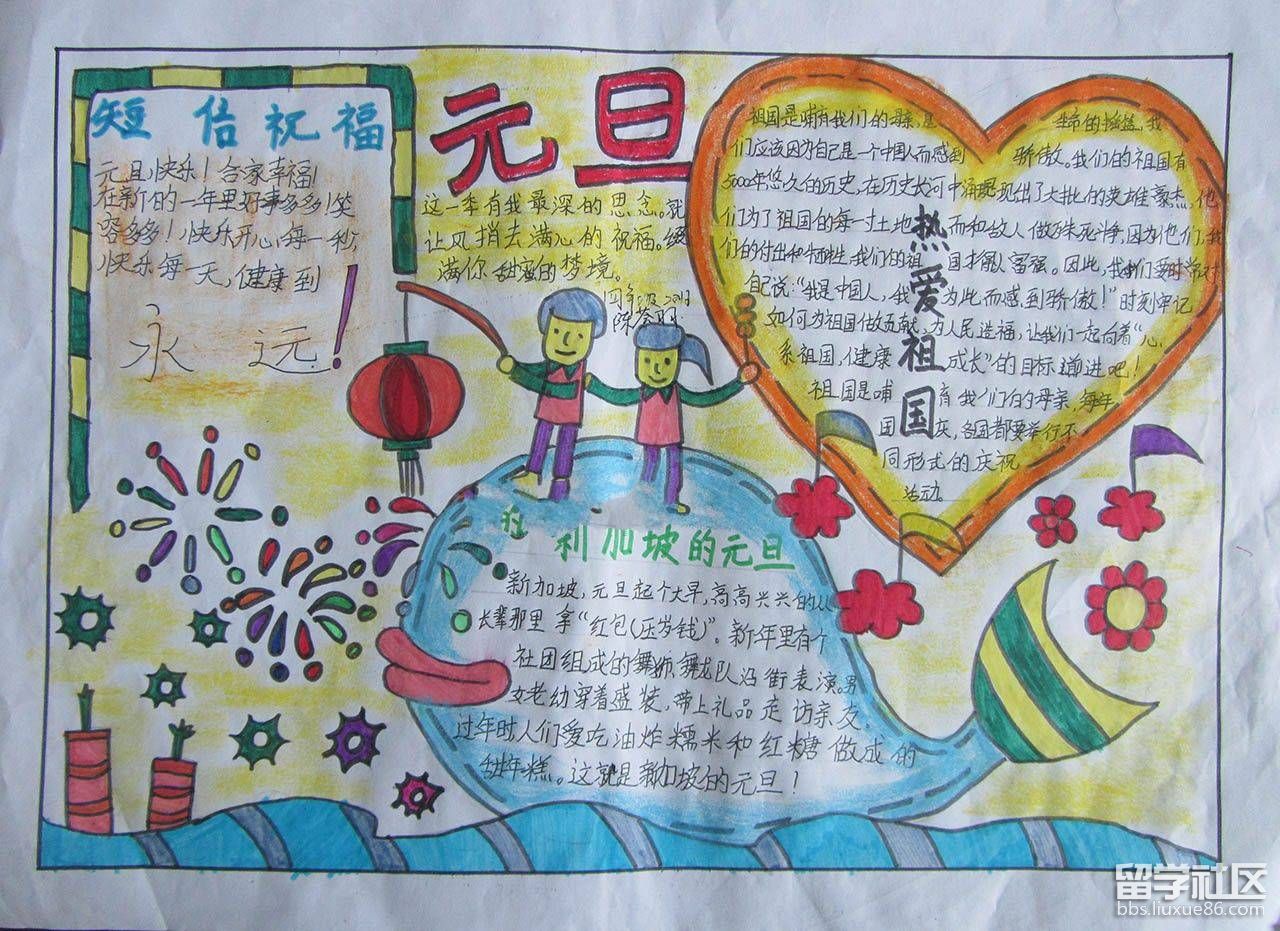 短信祝福
元旦快乐！合家幸福！
在新的一年里好事多多！笑
容多多！快乐开心每一秒，
快乐每一天，健康到
永 远！
元旦
这一季有我最深的思念。就
让风捎去满心的祝福。缀
满你甜蜜的梦境。
四年级
热爱祖国
祖国是哺育我们的母亲，是 生命的摇篮，我
们应该因为自己是一个中国人而感到 骄傲。我们的祖国有
5000年悠久的历史，在历史长河中涌现出了大批的英雄豪杰，他
们为了祖国的每一寸土地 而和敌人做殊死斗争，因为他们，我
们的付出和牺牲，我们的祖 国才能富强。因此，我们要时常对
自己说：“我是中国人，我 为此而感到骄傲！”时刻牢记
如何为祖国做贡献，为人民造福，让我们一起向着“心
系祖国，健康 成长”的目标迈进吧！
祖国是哺 育我们的母亲，每年
国 庆，各国都要举行不
同形式的庆祝
活动。
利加坡的元旦
新加坡，元旦起个大早，高高兴兴的从
长辈那里拿“红包（压岁钱）”。新年里有个
社团组成的舞狮、舞龙队沿街表演。男
女老幼穿着盛装，带上礼品走访亲友，
过年时人们爱吃油炸糯米和红糖做成的
甜年糕。这就是新加坡的元旦！
留学社区
bbs.liuxue86.com